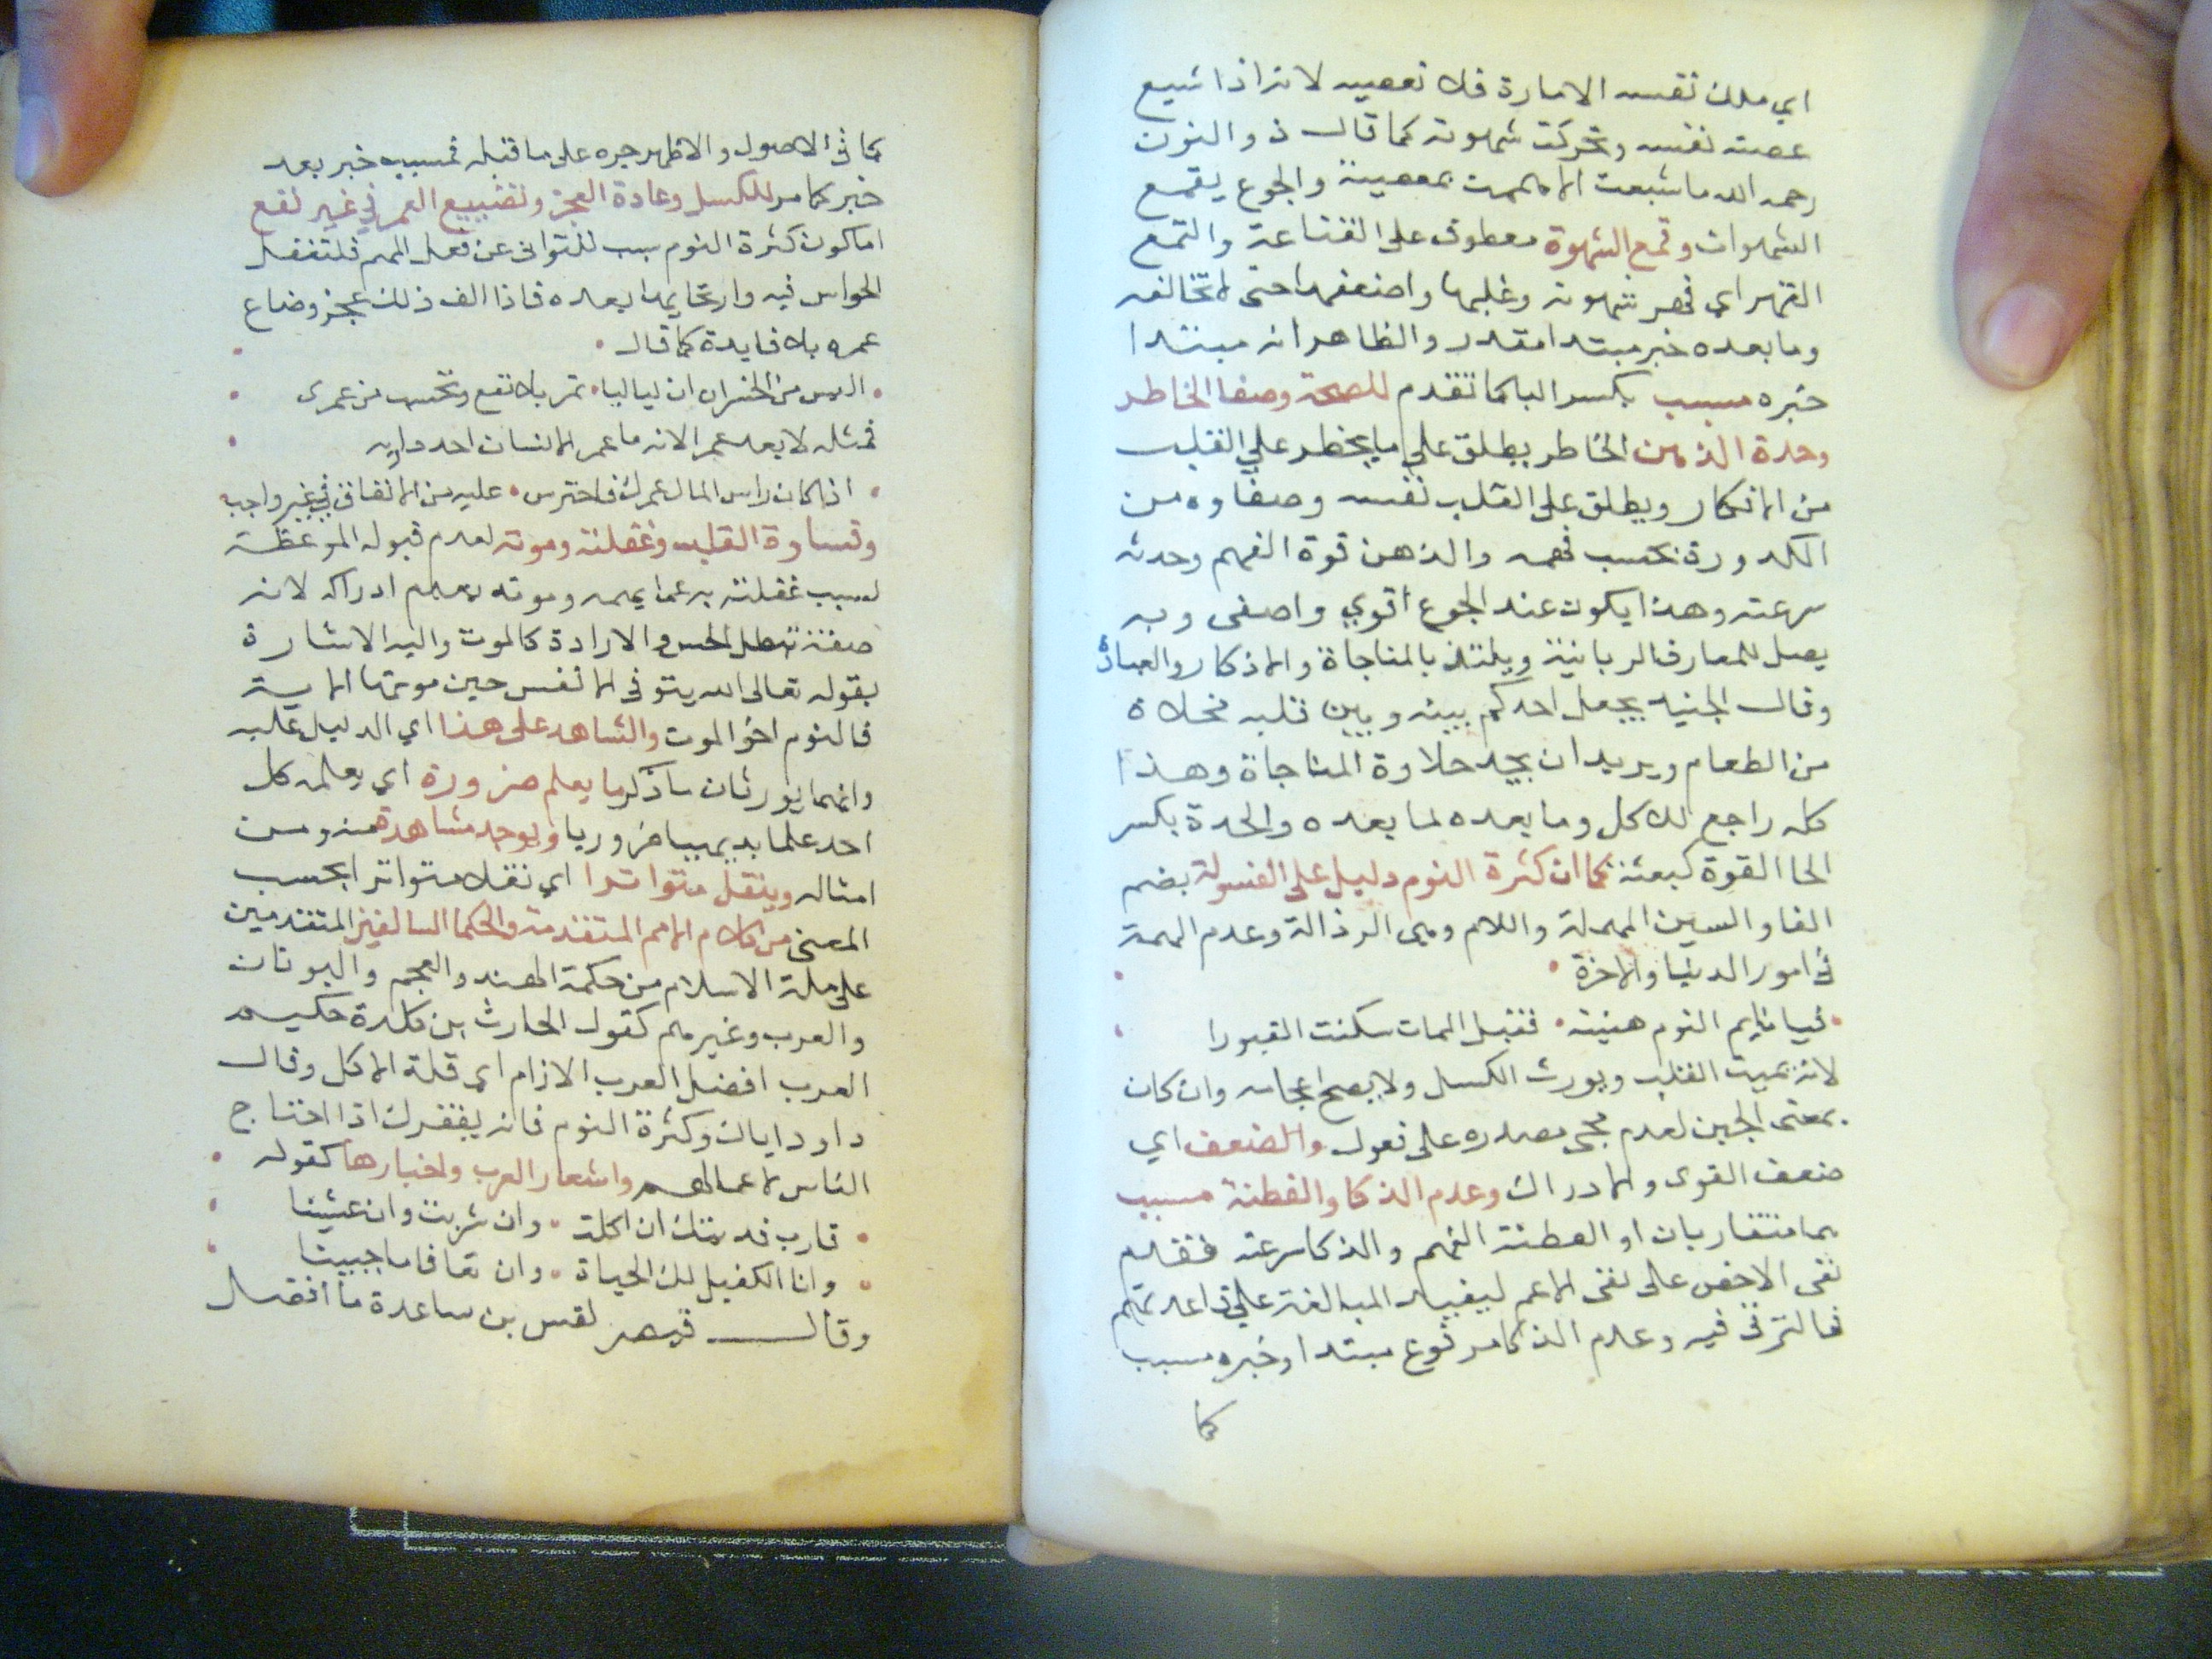 اي ملك نفسه الامارة فلا تعصيه لانه اذا شبع
عصته نفسه وتحركت شهوته كما قال ذو النون
رحمه الله ما شبعت الا هممت بمعصية والجوع يقمع
الشهوات وقمع الشهوة معطوف على القناعة والقمع
القهر اي قهر شهوته وغلبها واضعفها حتى لا تخالفه
وما بعده خبر مبتدا مقدر والظاهر انه مبتدا
خبره مسبب بكسر البا كما تقدم للصحة وصفا الخاطر
وحدة الذهن الخاطر يطلق على ما يخطر على القلب
من الافكار ويطلق على القلب نفسه وصفاوه من
الكدورة بحسب فهمه والذهن قوة الفهم وحدته
سرعته وهذا يكون عند الجوع اقوي واصفى وبه
يصل للمعارف الربانية ويلتذ بالمناجاة والاذكار والعبادة
وقال الجنيد يجعل احدكم بينه وبين قلبه مخلاة
من الطعام ويريد ان يجد حلاوة المناجاة وهذا
كله راجع للاكل وما بعده لما بعده والحدة بكسر
الحا القوة كبعثه كما ان كثرة النوم دليل على الفسولة بضم
الفا والسين المهملة واللام وهى الرذالة وعدم الهمة
فى امور الدنيا والاخرة
فيا نايم النوم هنيته فقبل الممات سكنت القبورا
لانه يميت القلب ويورث الكسل ولا يصح اعجامه وان كان
بمعنى الجبن لعدم مجى مصدره على فعول والضعف اي
ضعف القوى والادراك وعدم الذكا والفطنة مسبب
هما متقاربان او الفطنة الفهم والذكا سرعته فقدم
نفى الاخص على نفى الاعم ليفيد المبالغة على قاعدتهم
فالترقى فيه وعدم الذكا مرفوع مبتدا وخبره مسبب
كا
كما فى الاصول والاظهر جره على ما قبله فمسبب خبر بعد
خبر كما مر للكسل وعادة العجز وتضييع العمر في غير نفع
اما كون كثرة النوم سبب للتوانى عن فعل المهم فلتفقد
الحواس فيه وارتخايها بعده فاذا الف ذلك عجز وضاع
عمره بلا فايدة كما قال
اليس من الخسران ان لياليا تمر بلا نفع وتحسب من عمرى
فمثله لا يعد عمرا لانه ما عمر الانسان احد داريه
اذا كان راس المال عمرك فاحترس عليه من الانفاق في غير واجب
وقساوة القلب وغفلته وموته لعدم قبوله الموعظة
لسبب غفلته به عما يهمه وموته بعدم ادراكه لانه
صفة تبطل الحس والارادة كالموت واليه الاشارة
بقوله تعالى الله يتوفى الانفس حين موتها الاية
فالنوم اخو الموت والشاهد على هذا اي الدليل عليه
وانهما يورثان ما ذكر ما يعلم ضرورة اي يعلمه كل
احد علما بديهيا ضروريا ويوجد مشاهدة منه ومن
امثاله وينقل متواترا اي نقلا متواترا بحسب
المعنى من كلام الامم المتقدمة والحكما السالفين المتقدمين
على ملة الاسلام من حكمة الهند والعجم واليونان
والعرب وغيرهم كقول الحارث بن كلدة حكيم
العرب افضل العرب الازام اى قلة الاكل وقال
داود اياك وكثرة النوم فانه يفقرك اذا احتاج
الناس لاعمالهم واشعار العرب واخبارها كقوله
قارب فديتك ان اكلت وان شربت وان عشيتا
وانا الكفيل لك الحياة وان تعافا ما جبيتا
وقال قيصر لقس بن ساعدة ما افضل